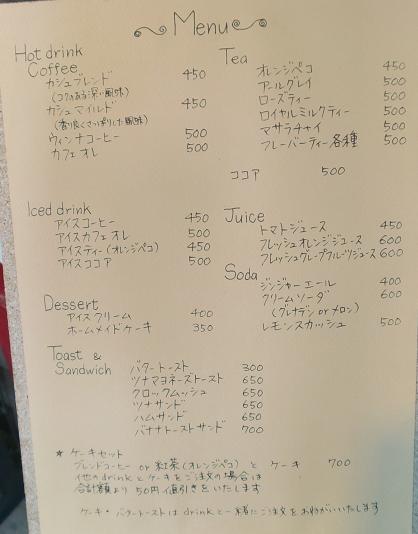 Menu
Hot drink
Coffee
カシュブレンド 450
(コクのある深い風味)
カシュマイルド 450
(香り良くさっぱりした風味)
ウィンナコーヒー 500
カフェオレ 500
Tea
オレンジペコ 450
アールグレイ 500
ローズティー 500
ロイヤルミルクティー 500
マサラチャイ 500
フレーバーティー各種 500
ココア 500
Iced drink
アイスコーヒー 450
アイスカフェオレ 500
アイスティー(オレンジペコ) 450
アイスココア 500
Juice
トマトジュース 450
フレッシュオレンジジュース 600
フレッシュグレープフルーツジュース 600
Soda
ジンジャーエール 400
クリームソーダ 600
(グレナデン or メロン)
レモンスカッシュ 500
Dessert
アイスクリーム 400
ホームメイドケーキ 350
Toast &
Sandwich
バタートースト 300
ツナマヨネーズトースト 650
クロックムッシュ 650
ツナサンド 650
ハムサンド 650
バナナトーストサンド 700
* ケーキセット
ブレンドコーヒー or 紅茶(オレンジペコ) と ケーキ 700
他のdrinkとケーキをご注文の場合は
合計額より 50円値引きをいたします
ケーキ・バタートーストはdrinkと一緒にご注文をお願いいたします